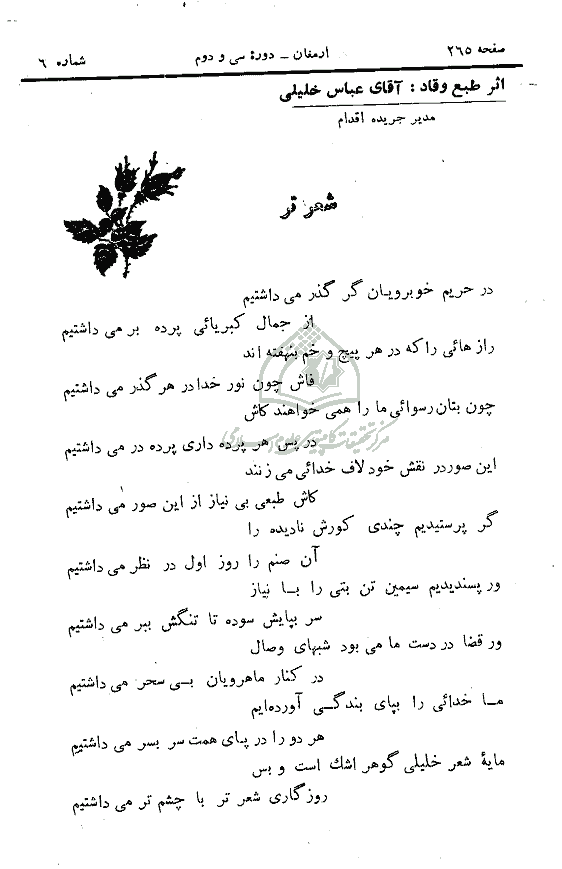 صفحه ۲۶۵ ارمغان ـ دورهٔ سی و دوم شماره ۶
اثر طبع وقاد : آقای عباس خلیلی
مدیر جریده اقدام
شعر تر
در حریم خوبرویان گر گذر می داشتیم
از جمال کبریائی پرده بر می داشتیم
راز هائی را که در هر پیچ و خم بنهفته اند
فاش چون نور خدا در هر گذر می داشتیم
چون بتان رسوائی ما را همی خواهند کاش
در پس هر پرده داری پرده در می داشتیم
این صور در نقش خود لاف خدائی می زنند
کاش طبعی بی نیاز از این صور می داشتیم
گر پرستیدیم چندی کورش نادیده را
آن صنم را روز اول در نظر می داشتیم
ور پسندیدیم سیمین تن بتی را بــا نیاز
سر بپایش سوده تا تنگش ببر می داشتیم
ور قضا در دست ما می بود شبهای وصال
در کنار ماهرویان بــی سحر می داشتیم
مــا خدائی را بپای بندگــی آورده‌ایم
هر دو را در پــای همت سر بسر می داشتیم
مایهٔ شعر خلیلی گوهر اشك است و بس
روزگاری شعر تر با چشم تر می داشتیم